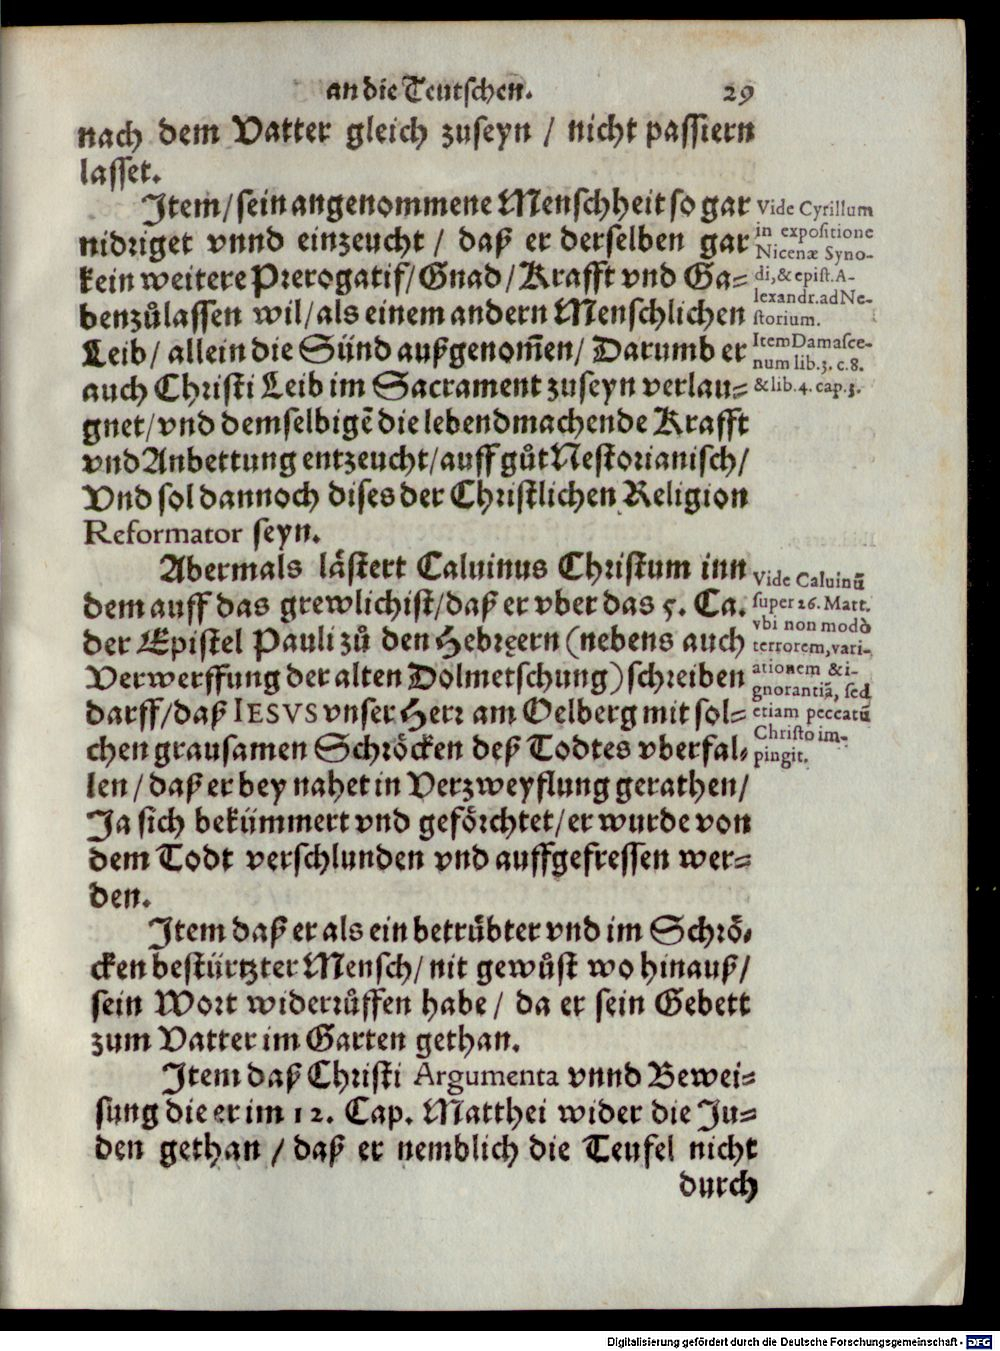 an die Teutschen. 29
nach dem Vatter gleich zuseyn / nicht passiern
lasset.
Item / sein angenommene Menschheit so gar
nidriget vnnd einzeucht / daß er derselben gar
kein weitere Prerogatif / Gnad / Krafft vnd Ga=
benzůlassen wil / als einem andern Menschlichen
Leib / allein die Sünd außgenom̃en / Darumb er
auch Christi Leib im Sacrament zuseyn verlau=
gnet / vnd demselbigẽ die lebendmachende Krafft
vnd Anbettung entzeucht / auff gůt Nestorianisch /
Vnd sol dannoch dises der Christlichen Religion
Reformator seyn.
Vide Cyrillum
in expositione
Nicenæ Syno-
di, & epist. A-
lexandr. ad Ne-
storium.
Item Damasce-
num lib. 3. c. 8.
& lib. 4. cap. 3.
Abermals lästert Caluinus Christum inn
dem auff das grewlichist / daß er vber das 5. Ca.
der Epistel Pauli zů den Hebręern (nebens auch
Verwerffung der alten Dolmetschung) schreiben
darff / daß IESVS vnser Herr am Oelberg mit sol=
chen grausamen Schröcken deß Todtes vberfal=
len / daß er bey nahet in Verzweyflung gerathen /
Ja sich bekümmert vnd geförchtet / er wurde von
dem Todt verschlunden vnd auffgefressen wer=
den.
Vide Caluinū
super 26. Matt.
vbi non modò
terrorem, vari-
ationem & i-
gnorantiā, sed
etiam peccatū
Christo im-
pingit.
Item daß er als ein betrübter vnd im Schrö=
cken bestürtzter Mensch / nit gewůst wo hinauß /
sein Wort widerrůffen habe / da er sein Gebett
zum Vatter im Garten gethan.
Item daß Christi Argumenta vnnd Bewei=
sung die er im 12. Cap. Matthei wider die Ju=
den gethan / daß er nemblich die Teufel nicht
durch
Digitalisierung gefördert durch die Deutsche Forschungsgemeinschaft - DFG